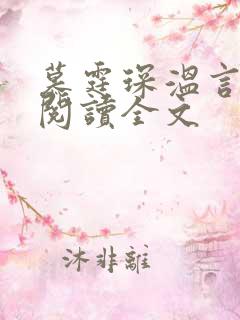 慕霆琛溫言
閱讀全文
沐非離